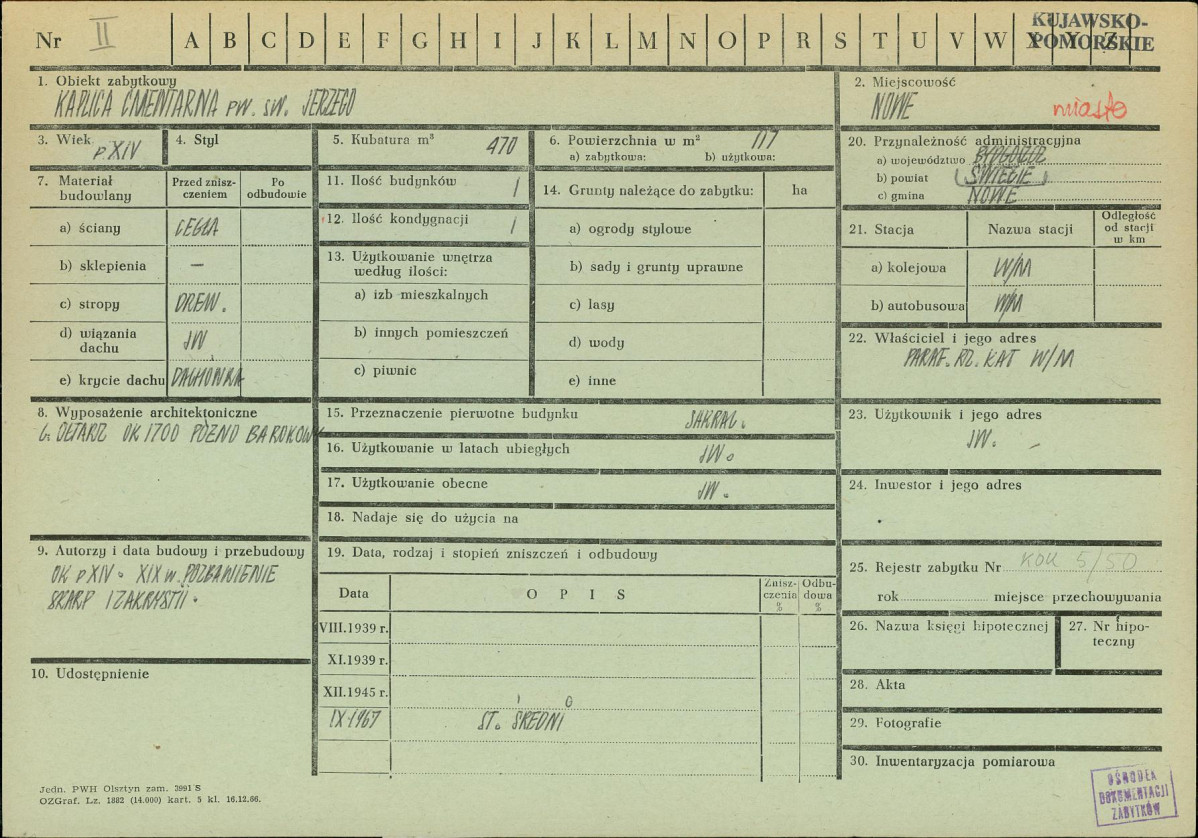 Nr II A B C D E F G H I J K L M N O P R S T U V W X Y Z
KUJAWSKO-
POMORSKIE
1. Obiekt zabytkowy
KAPLICA CMENTARNA PW. ŚW. JERZEGO
2. Miejscowość
NOWE miasto
3. Wiek pXIV
4. Styl
5. Kubatura m³ 470
6. Powierzchnia w m² 117
a) zabytkowa: b) użytkowa:
20. Przynależność administracyjna
a) województwo BYDGOSZCZ
b) powiat (ŚWIECIE)
c) gmina NOWE
7. Materiał budowlany
Przed znisz-
czeniem
Po
odbudowie
a) ściany CEGŁA
b) sklepienia –
c) stropy DREW.
d) wiązania
dachu JW
e) krycie dachu DACHÓWKA
11. Ilość budynków 1
12. Ilość kondygnacji 1
13. Użytkowanie wnętrza
według ilości:
a) izb mieszkalnych
b) innych pomieszczeń
c) piwnic
14. Grunty należące do zabytku: ha
a) ogrody stylowe
b) sady i grunty uprawne
c) lasy
d) wody
e) inne
21. Stacja
Nazwa stacji
Odległość
od stacji
w km
a) kolejowa W/M
b) autobusowa W/M
22. Właściciel i jego adres
PARAF. RZ. KAT W/M
8. Wyposażenie architektoniczne
G. OŁTARZ OK 1700 PÓŹNO BAROKOWY
15. Przeznaczenie pierwotne budynku SAKRAL.
16. Użytkowanie w latach ubiegłych JW.
17. Użytkowanie obecne JW.
18. Nadaje się do użycia na
23. Użytkownik i jego adres
JW. –
24. Inwestor i jego adres
9. Autorzy i data budowy i przebudowy
OK pXIV. XIX w. POZBAWIENIE
SKARP I ZAKRYSTII.
10. Udostępnienie
19. Data, rodzaj i stopień zniszczeń i odbudowy
Data
O P I S
Znisz-
czenia
%
Odbu-
dowa
%
VIII.1939 r.
XI.1939 r.
XII.1945 r.
IX-1967 ST. ŚREDNI
25. Rejestr zabytku Nr KOK 5/50
rok miejsce przechowywania
26. Nazwa księgi hipotecznej
27. Nr hipo-
teczny
28. Akta
29. Fotografie
30. Inwentaryzacja pomiarowa
OŚRODEK
DOKUMENTACJI
ZABYTKÓW
Jedn. PWH Olsztyn zam. 3991 S
OZGraf. Lz. 1882 (14.000) kart. 5 kl. 16.12.66.